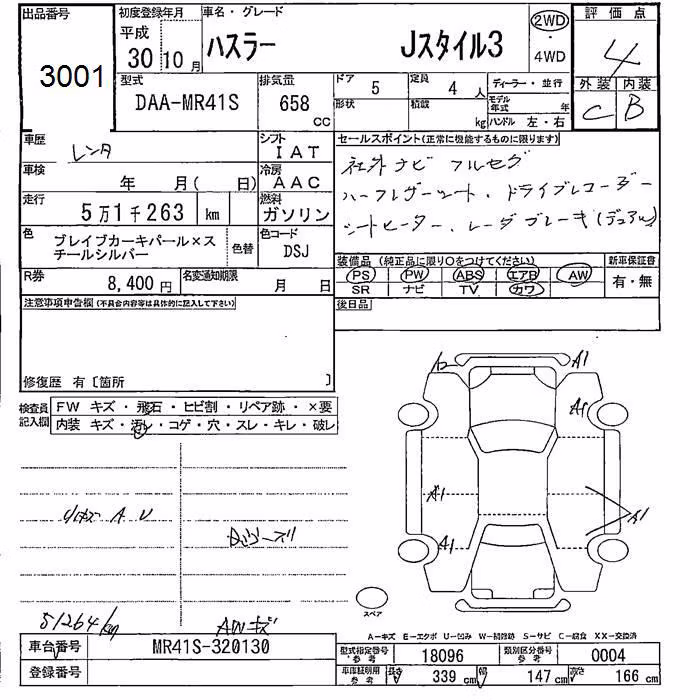 出品番号
3001
初度登録年月
平成
30 10 月
車名・グレード
ハスラー Jスタイル3
2WD
・
4WD
評価点
4
外装 内装
C B
型式
DAA-MR41S
排気量
658
CC
ドア
5
定員
4 人
形状
積載
kg
ディーラー・並行
モデル年式 年
ハンドル 左・右
車歴
レンタ
シフト
IAT
車検
年 月( 日)
冷房
AAC
走行
5万1千263 km
燃料
ガソリン
色
ブレイブカーキパール×スチールシルバー
色替
色コード
DSJ
R券
8,400 円
名変通知期限
月 日
セールスポイント(正常に機能するものに限ります)
社外ナビ フルセグ
ハーフレザーシート・ドライブレコーダー
シートヒーター・レーダブレーキ(デュアル)
装備品(純正品に限り○をつけてください)
PS PW ABS エアB AW
SR ナビ TV カワ
新車保証書
有・無
後日品
注意事項申告欄(不具合内容等は具体的に記入して下さい)
修復歴 有〔箇所 〕
検査員記入欄
FW キズ・飛石・ヒビ割・リペア跡・×要
内装 キズ・汚レ・コゲ・穴・スレ・キレ・破レ
A U
51264km
AWキズ
A1
A1
A1
A1
A1
スペア
A-キズ E-エクボ U-凹み W-補修跡 S-サビ C-腐食 XX-交換済
車台番号
MR41S-320130
登録番号
型式指定番号
・参考
18096
類別区分番号
・参考
0004
車庫証明用
・参考
長さ 339 cm
幅 147 cm
高さ 166 cm